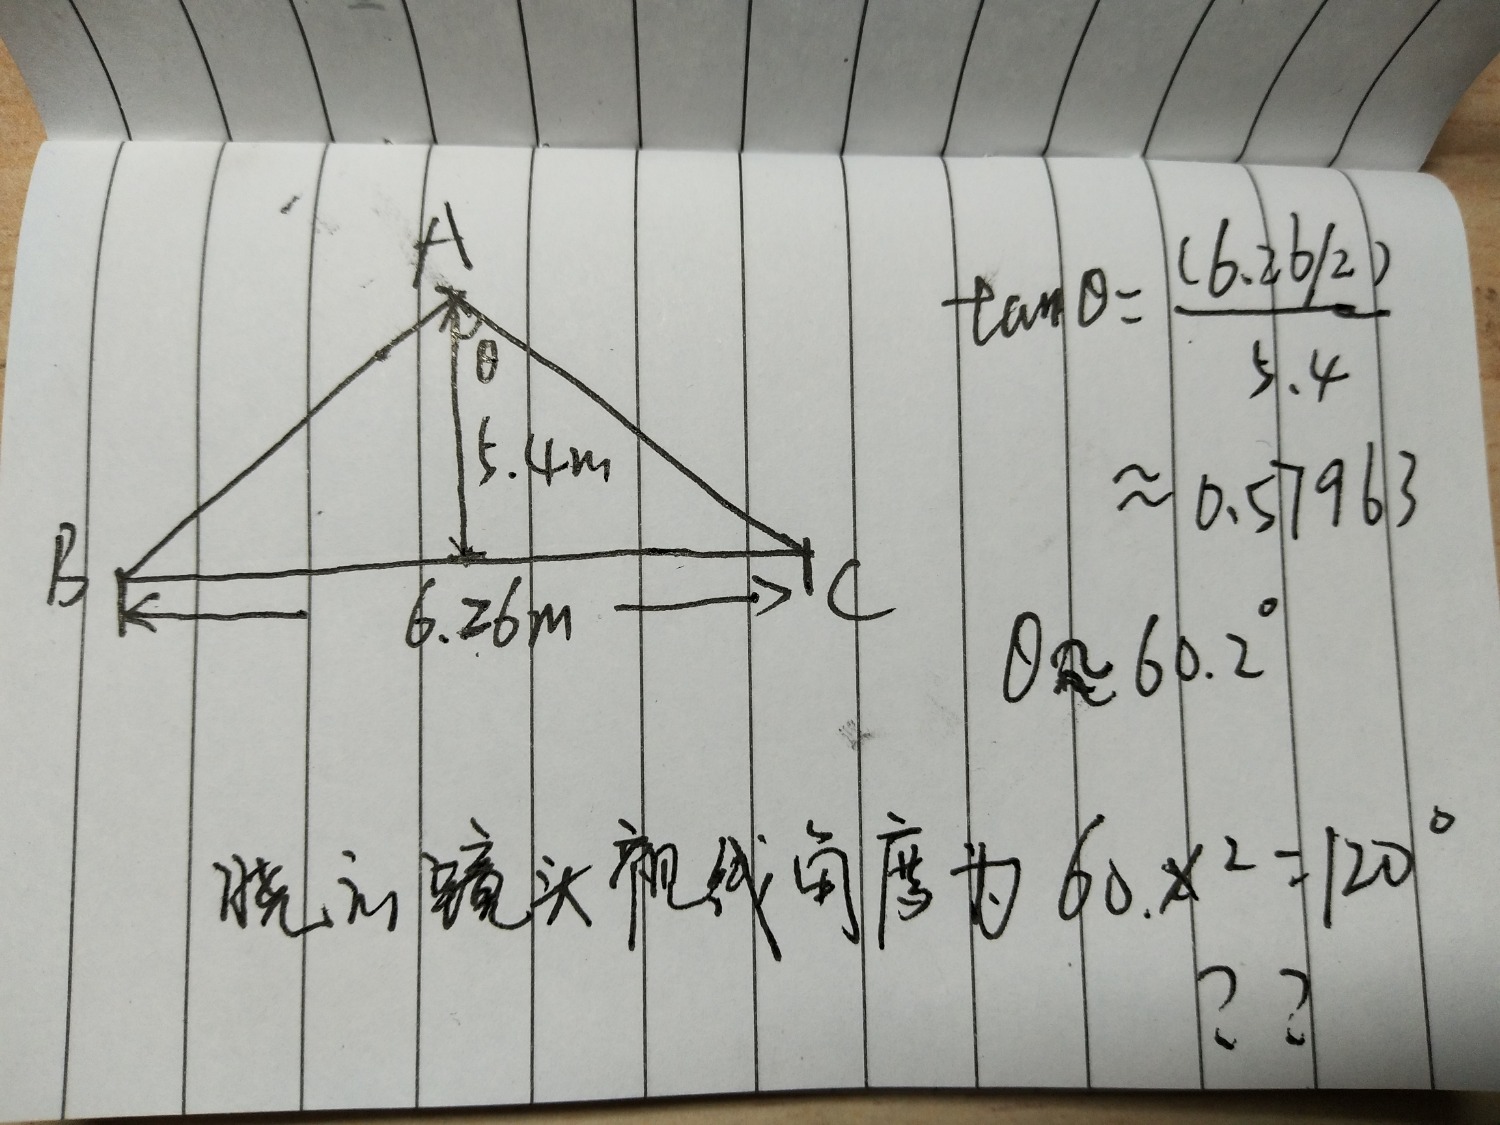 A
θ
5.4m
B
6.26m
C
tanθ= (6.26/2)
5.4
≈ 0.57963
θ≈60.2°
镜头视线角度为 60.×2=120°
? ?